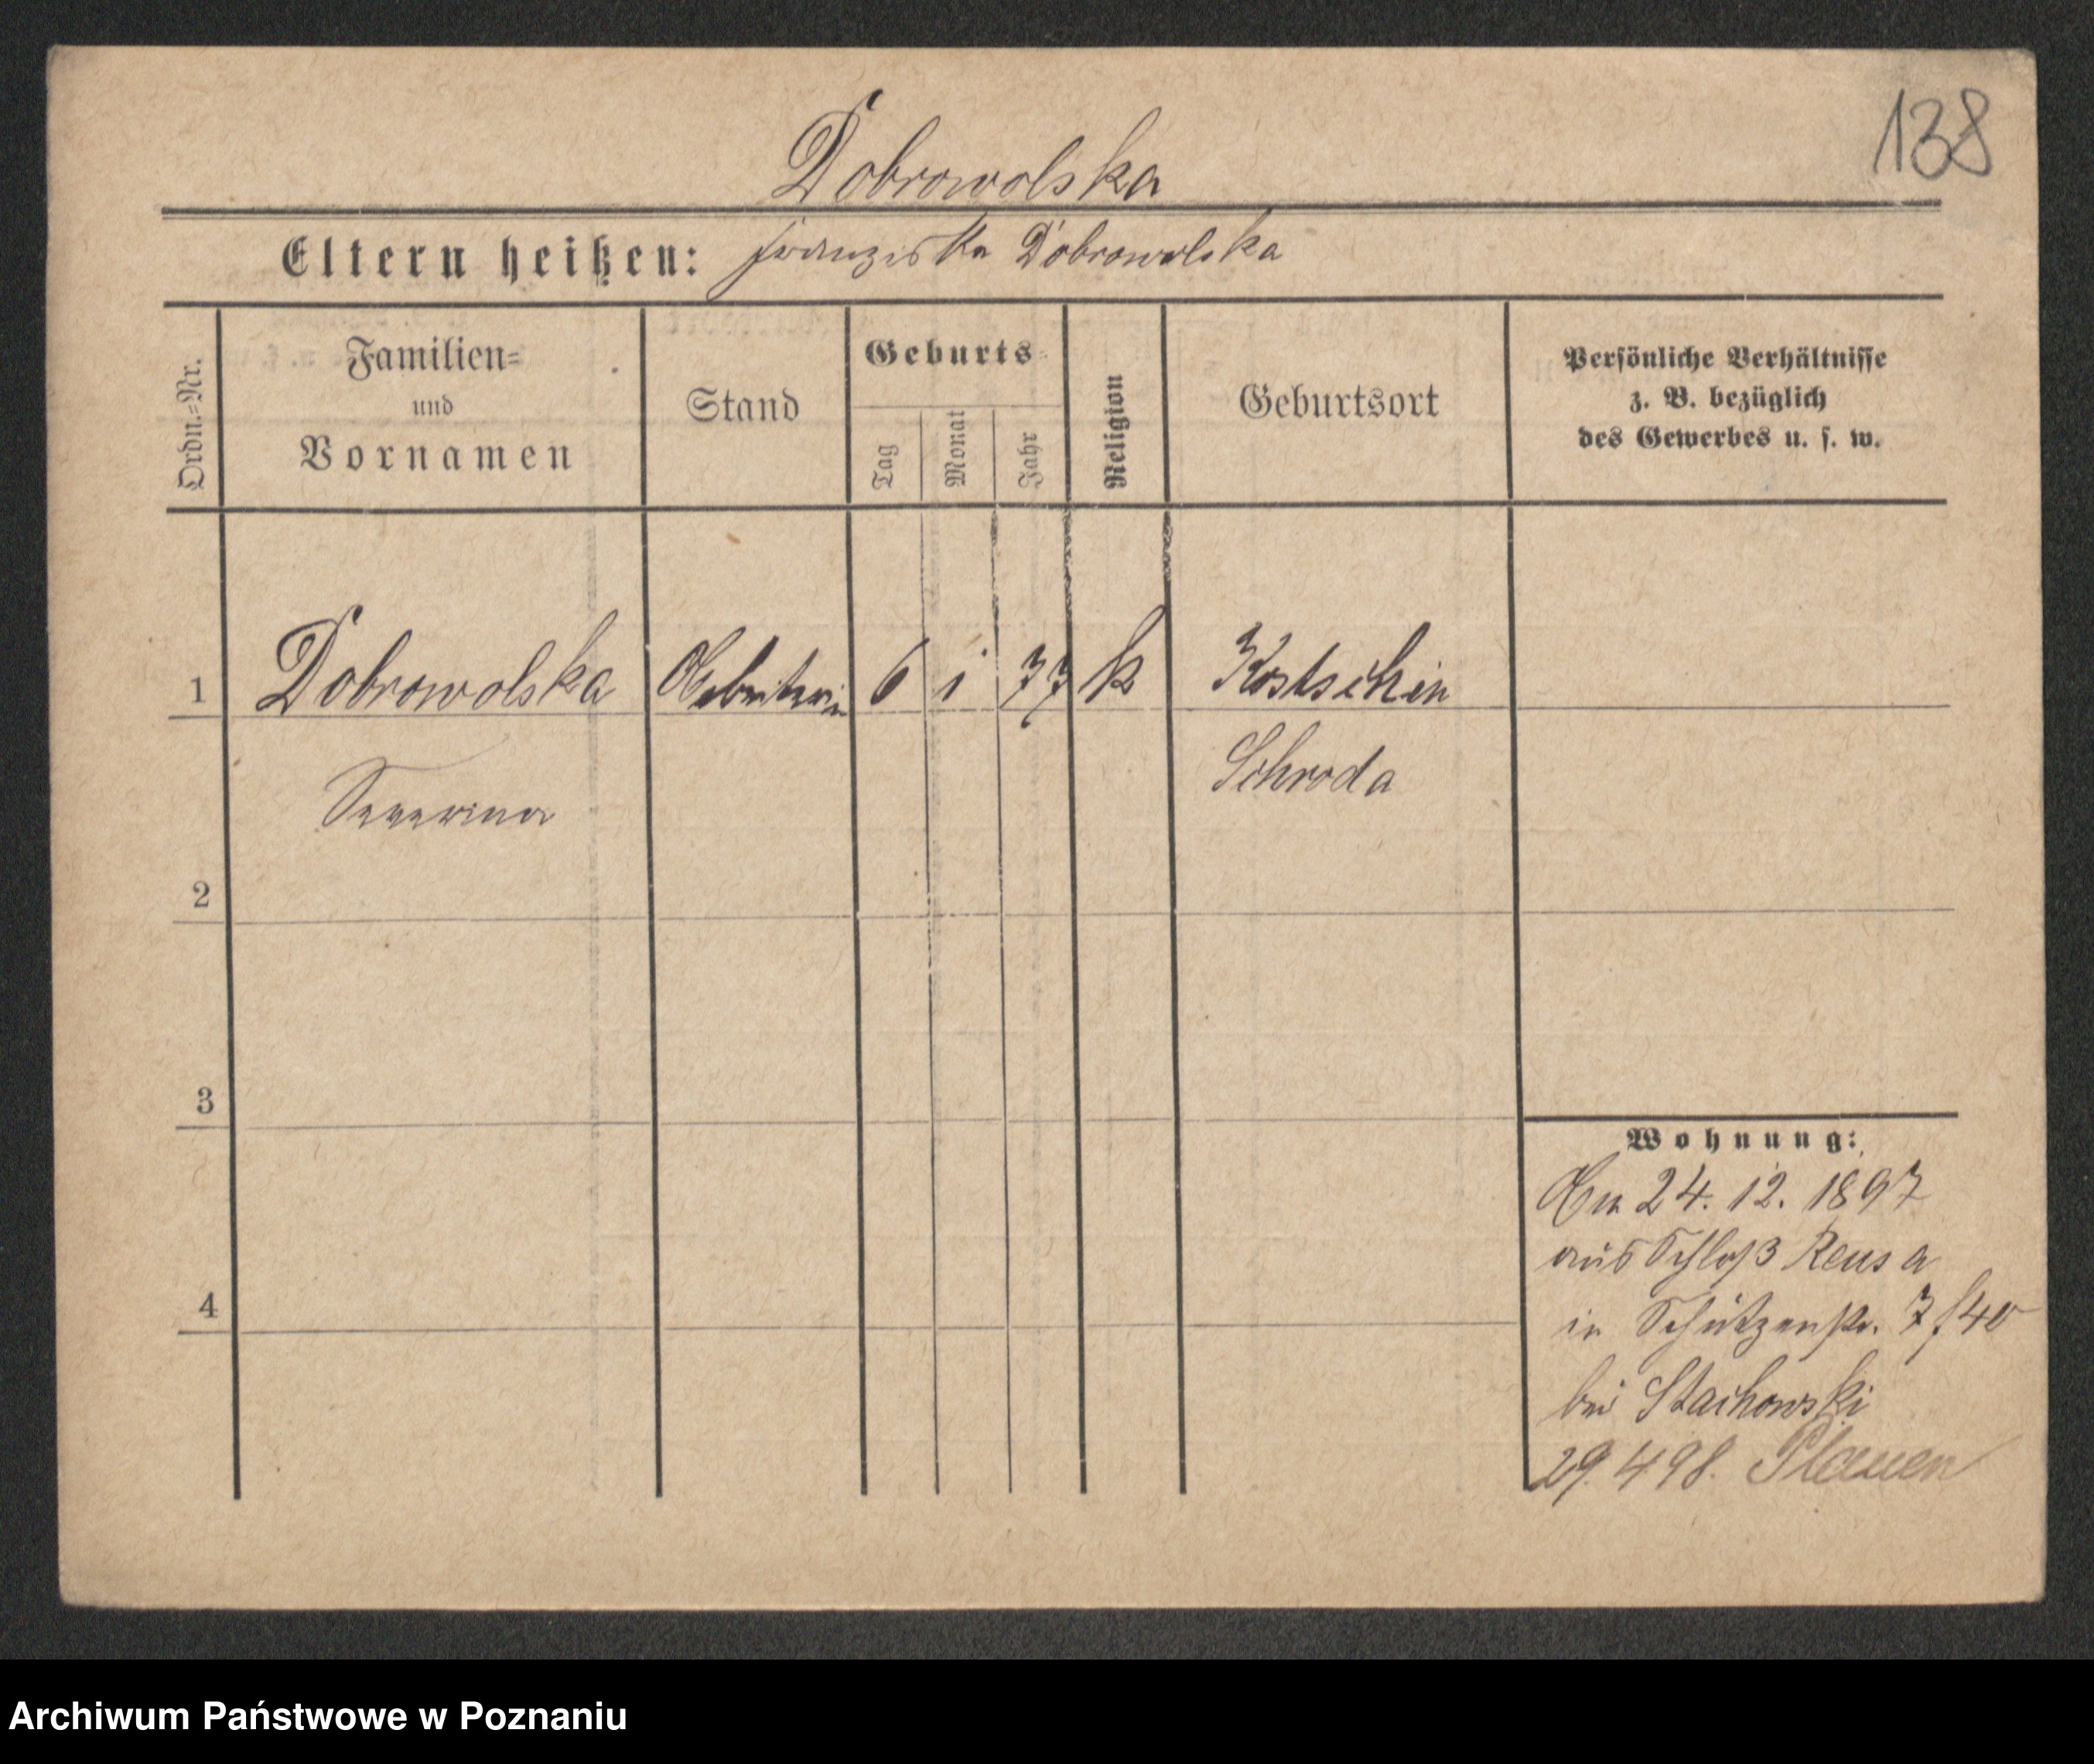 138
Dobrowolska
Eltern heißen: Franziska Dobrowolska
Ordn.=Nr.
Familien=
und
Vornamen
Stand
Geburts=
Tag
Monat
Jahr
Religion
Geburtsort
Persönliche Verhältnisse
z. B. bezüglich
des Gewerbes u. s. w.
1 Dobrowolska Arbeiterin 6 1 77 k Kostschin
Schroda
Severina
2
3
4
Wohnung:
An 24. 12. 1897
aus Schloß Reusa
in Schützenstr. 7/40
bei Stachowski
29. 4 98. Plauen
Archiwum Państwowe w Poznaniu